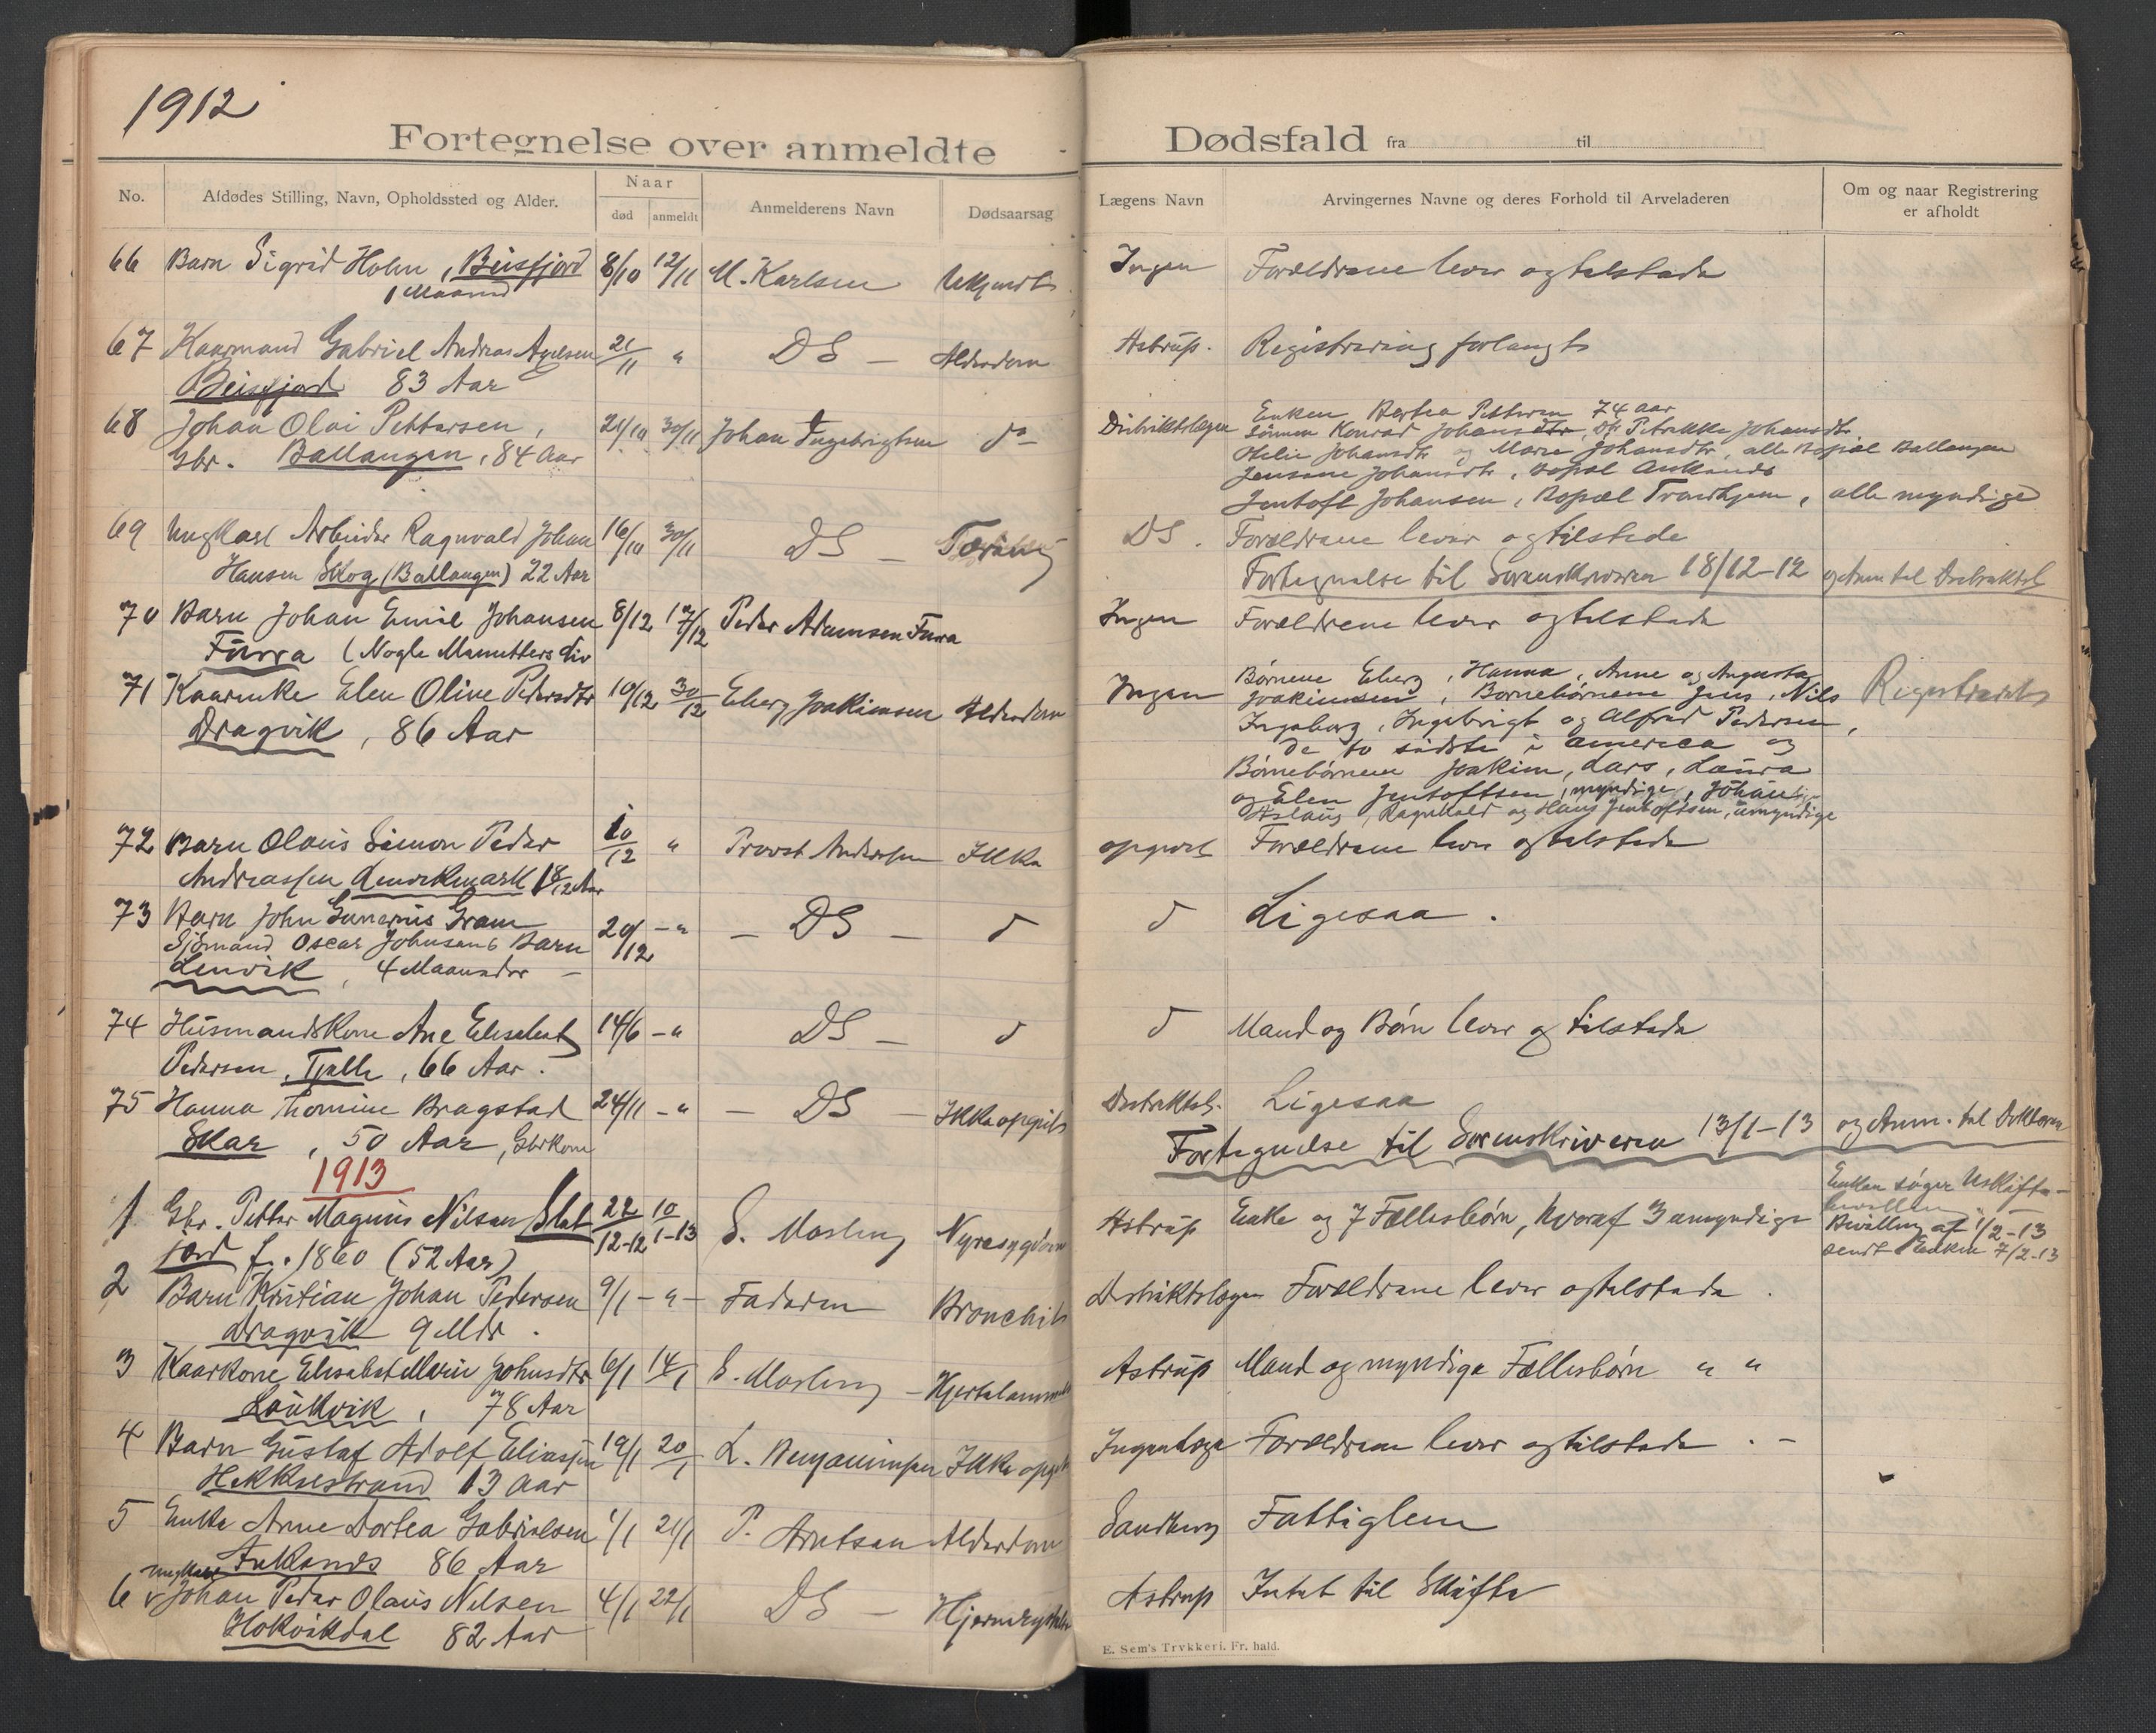 1912
Fortegnelse over anmeldte Dødsfald fra til
No. Afdødes Stilling, Navn, Opholdssted og Alder. Naar død anmeldt Anmelderens Navn Dødsaarsag Lægens Navn Arvingernes Navne og deres Forhold til Arveladeren Om og naar Registrering er afholdt
66 Barn Sigrid Holm, Beisfjord 8/10 12/11 M. Karlsen Ukjendt Ingen Forældrene lever og tilstede
1 Maaned
67 Kaarmand Gabriel Andreas Axelsen 21/11 " DS — Alderdom Astrup. Registrering forlangt
Beisfjord 83 Aar
68 Johan Olai Pettersen, 21/10 30/11 Johan Ingebrigtsen do Distriktslægen Enken Bertea Pettersen 74 aar
Gbr. Ballangen, 84 Aar
sønnen Konrad Johansen, Petrikke Johansdtr
Johansdtr og Marie Johansdtr, alle Bopæl Ballangen
Jensine Johansdtr, Bopæl Anklands
Jentoft Johansen, Bopæl Trondhjem, alle myndige
69 Ungkarl Arbeider Ragnvald Johan 16/10 30/11 DS — Tæring DS. Forældrene lever og tilstede
Hansen Skog (Ballangen) 22 Aar
Fortegnelse til Sorenskriveren 18/12-12 og Anm til Distriktsl
70 Barn Johan Emil Johansen 8/12 17/12 Peder Adamsen Furra Ingen Forældrene lever og tilstede
Furra (Nogle Minutters Liv
71 Kaarenke Elen Olive Pedersdtr 10/12 30/12 Eberg Joakimsen Alderdom Ingen Børnene Eberg, Hanna, Anne og Augusta
Dragvik, 86 Aar
Joakimsen, Børnebørnene Jens, Nils Registreret
Ingeborg, Ingebrigt og Alfred Pedersen,
de to sidste i America og
Børnebørnene Joakim, Lars, Laura
og Elen Jentoftsen, myndige, Johan,
Aslaug, Ragnvald og Hans Jentoftsen, umyndige
72 Barn Olaus Simon Peder 10/12 " Provst Anderssen Ikke opgivet Forældrene lever og tilstede
Andreassen Lenvikmark 1 8/12 Aar
73 Barn John Gunerius Gram 20/12 — " — DS — d d Ligesaa.
Sjømand Oscar Johnsens Barn
Lenvik, 4 Maaneder —
74 Husmandskone Ane Elisabet 14/6 — " DS — d d Mand og Børn lever og tilstede
Pedersen, Tjelle, 66 Aar.
75 Hanna Thomine Bragstad 24/11 — " — DS — Ikke opgivet Distriktsl. Ligesaa
Skar, 50 Aar, Gbrkone
Fortegnelse til Sorenskriveren 13/1-13 og Anm. til Doktoren
1913
1 Gbr. Petter Magnus Nilsen Slet 22/12-12 10/1-13 S. Mosling Nyresygdom Astrup Enke og 7 Fællesbørn, hvoraf 3 umyndige
jord f. 1860 (52 Aar)
Enken søger Uskifte-
bevilling
Bevilling af 1/2-13
sendt Enken 7/2-13
2 Barn Kristian Johan Pedersen 9/1 — " — Faderen Bronchit Distriktslægen Forældrene lever og tilstede.
Dragvik 9 Mdr.
3 Kaarkone Elisabet Marie Johnsdtr 6/1 14/1 S. Mosling — Hjertelammelse Astrup Mand og myndige Fællesbørn " "
Laukvik, 78 Aar
4 Barn Gustaf Adolf Eliassen 19/1 20/1 L. Benjaminsen Ikke opgivet Ingen Læge Forældrene lever og tilstede. —
Hekkestrand 13 Aar
5 Enke Anne Dortea Gabrielsen 1/1 21/1 P. Arntsen Alderdom Sandberg Fattiglem
Anklands 86 Aar
6 Ungkarl Johan Peder Olaus Nilsen 4/1 22/1 DS — Astrup Intet til Skifte
Hokvikdal 82 Aar
E. Sem's Trykkeri. Fr. hald.